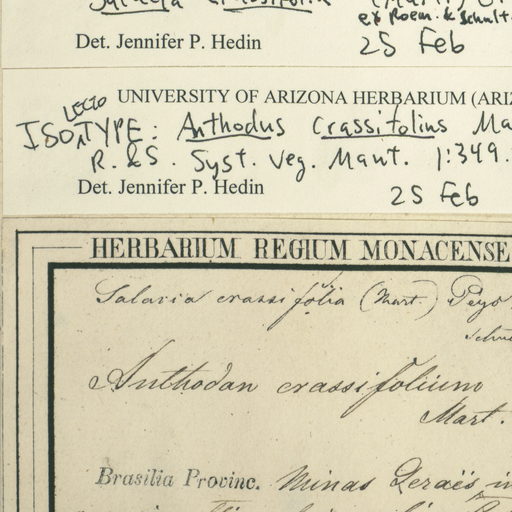 Salacia crassifolia (Mart.)
ex Roem. & Schult.
Det. Jennifer P. Hedin 25 Feb
UNIVERSITY OF ARIZONA HERBARIUM (ARIZ
LECTO
ISO^TYPE: Anthodus crassifolius Ma
R. & S. Syst. Veg. Mant. 1:349.
Det. Jennifer P. Hedin 25 Feb
HERBARIUM REGIUM MONACENSE
Salacia crassifolia (Mart.) Peyr
Anthodon crassifolium
Mart.
Brasilia Provinc. Minas Geraës in